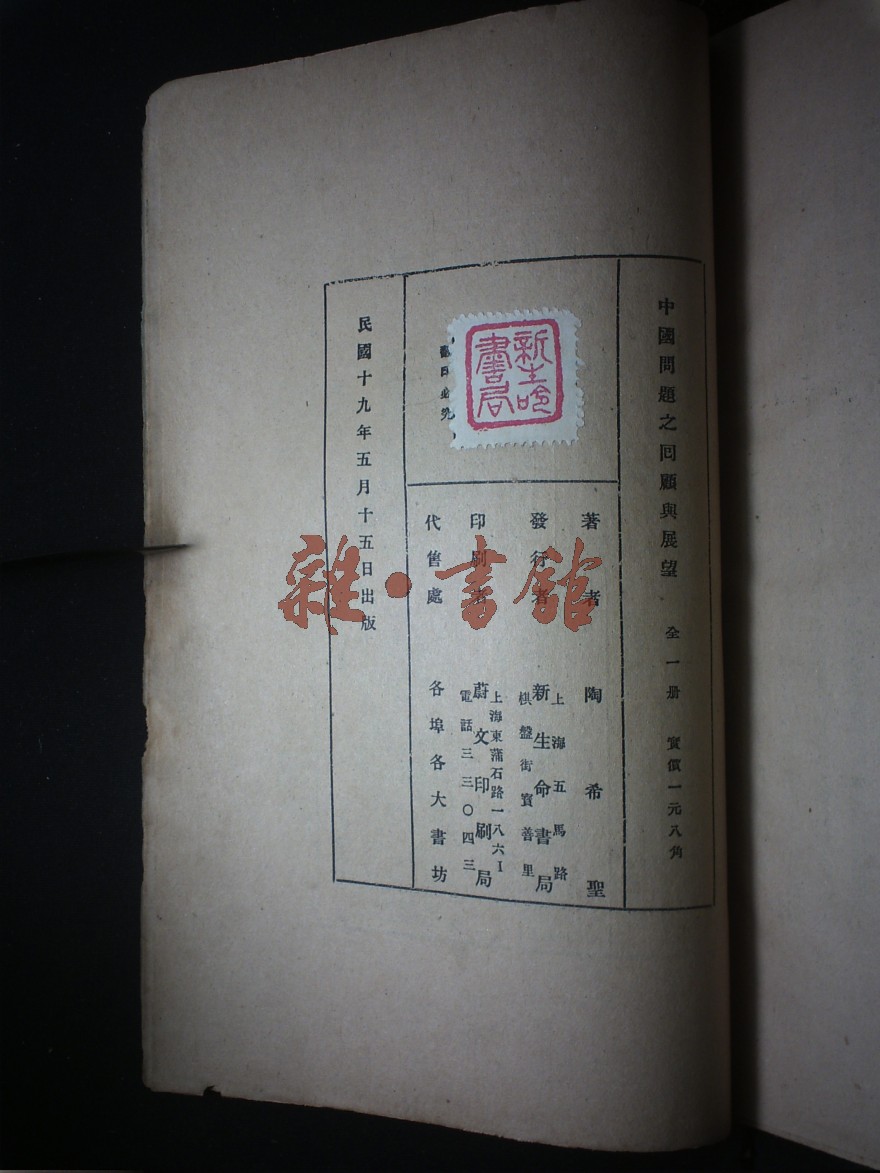 中國問題之回顧與展望　全一册　實價一元八角
新生命
書局
翻印必究
著者　陶希聖
發行者　新生命書局
上海五馬路
棋盤街寶善里
印刷者　蔚文印刷局
上海東蒲石路一八六I
電話三三〇四三
代售處　各埠各大書坊
民國十九年五月十五日出版
雜·書館